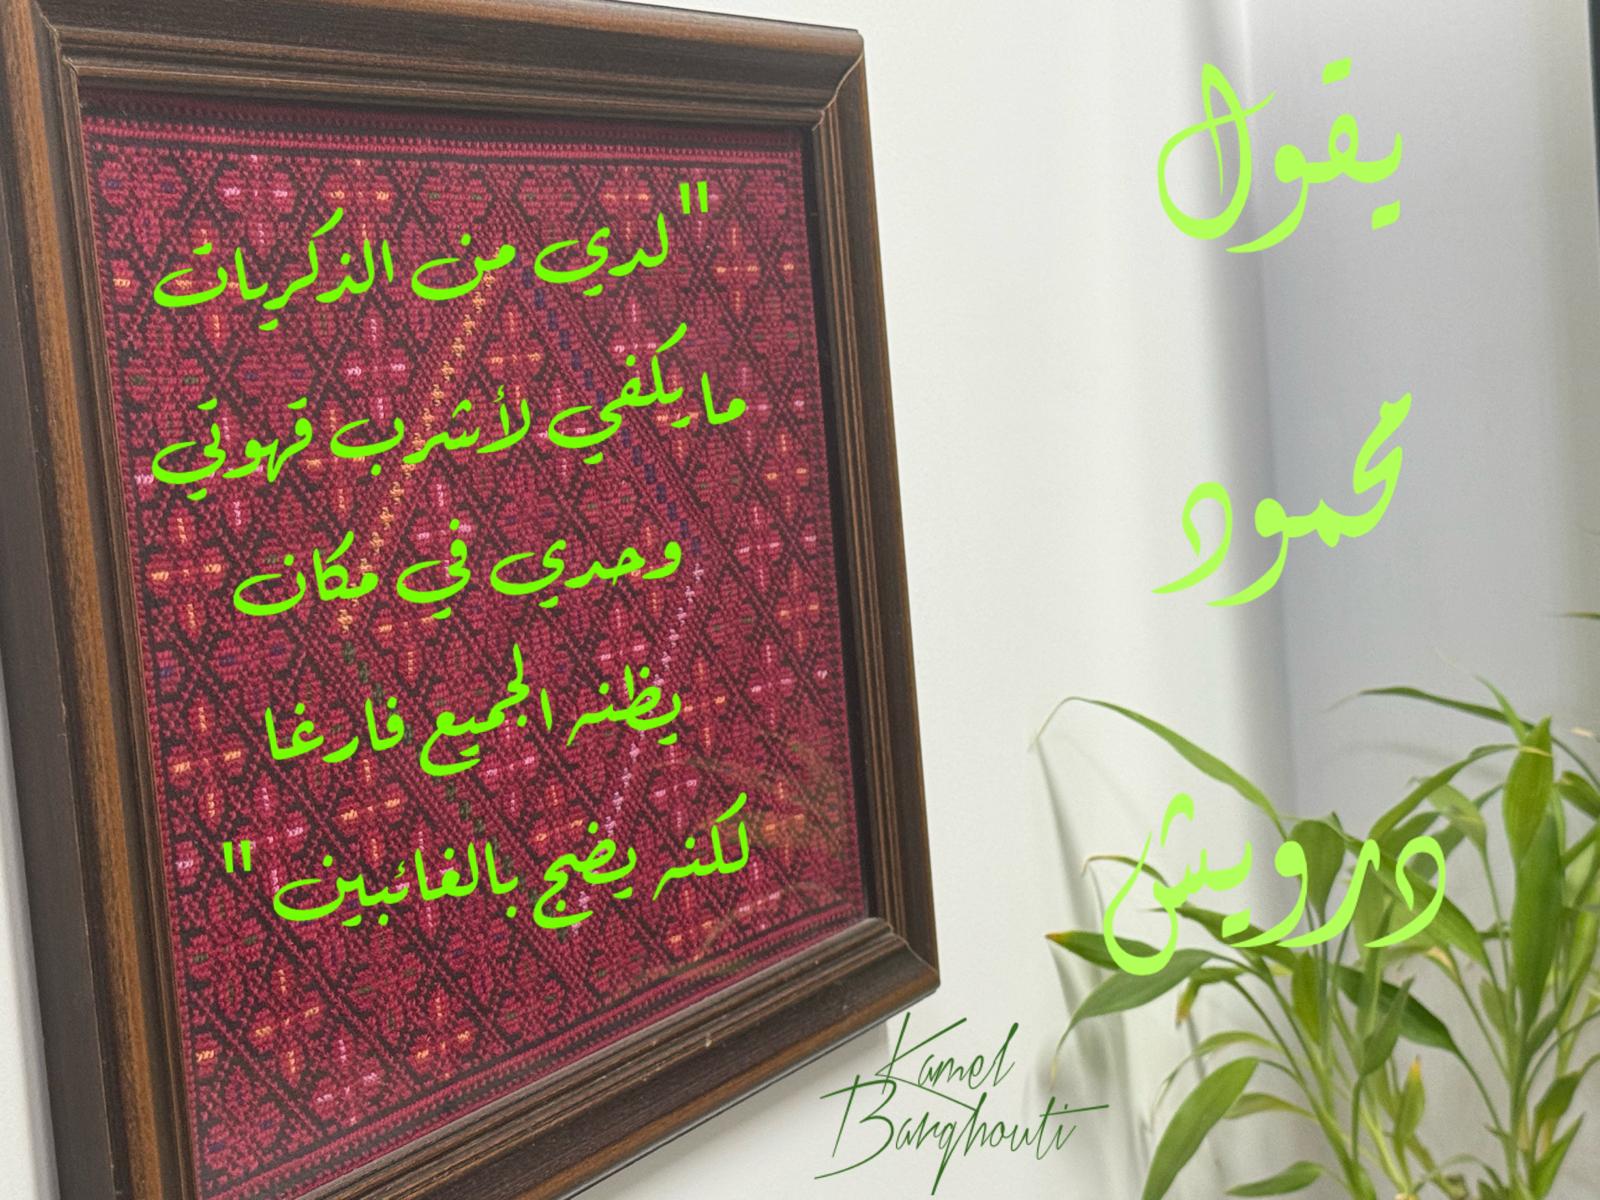 يقول
محمود
درويش
"لدي من الذكريات
ما يكفي لأشرب قهوتي
وحدي في مكان
يظنه الجميع فارغا
لكنه يضج بالغائبين"
Kamel
Barghouti